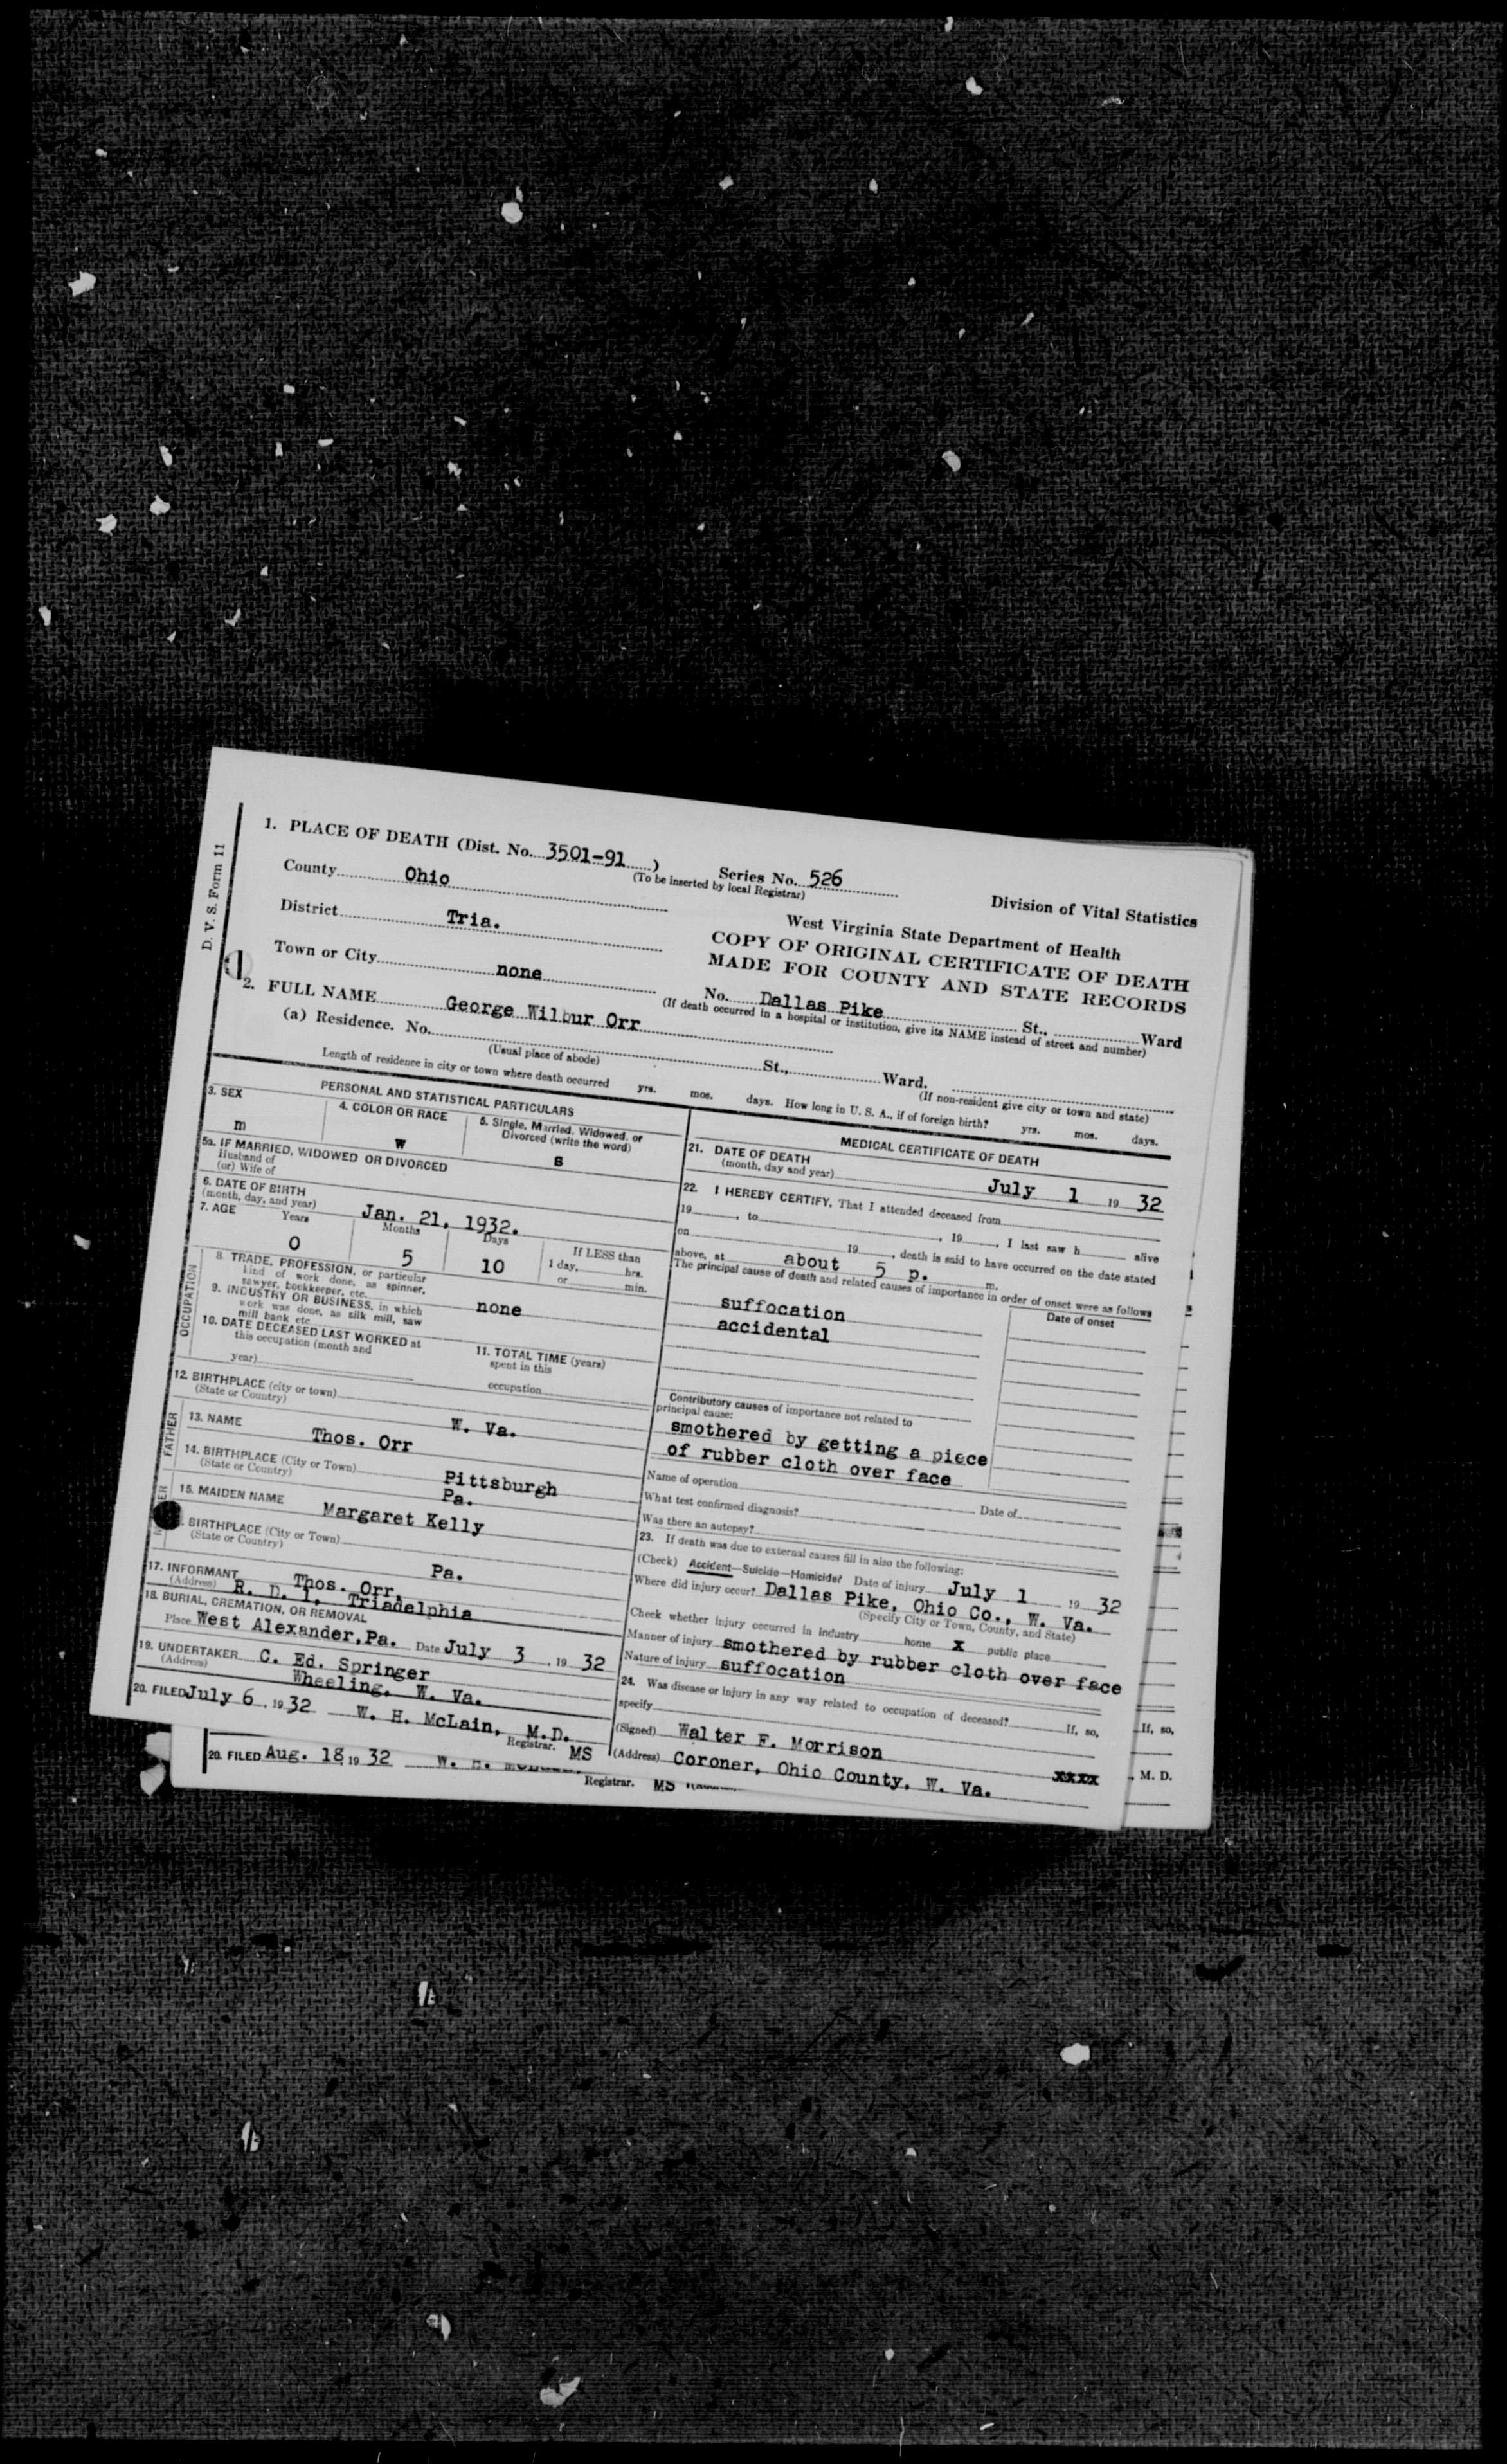 D. V. S. Form 11
1. PLACE OF DEATH (Dist. No. 3501-91 )
Series No. 526
(To be inserted by local Registrar)
County Ohio
District Tria.
Town or City none
Division of Vital Statistics
West Virginia State Department of Health
COPY OF ORIGINAL CERTIFICATE OF DEATH
MADE FOR COUNTY AND STATE RECORDS
No. Dallas Pike St., Ward
(If death occurred in a hospital or institution, give its NAME instead of street and number)
2. FULL NAME George Wilbur Orr
(a) Residence. No. St., Ward.
(Usual place of abode)
(If non-resident give city or town and state)
Length of residence in city or town where death occurred yrs. mos. days. How long in U. S. A., if of foreign birth? yrs. mos. days.
PERSONAL AND STATISTICAL PARTICULARS
3. SEX
m
4. COLOR OR RACE
w
5. Single, Married, Widowed, or
Divorced (write the word)
s
5a. IF MARRIED, WIDOWED OR DIVORCED
Husband of
(or) Wife of
6. DATE OF BIRTH
(month, day, and year) Jan. 21, 1932.
7. AGE Years Months Days If LESS than
0 5 10 1 day, hrs.
or min.
OCCUPATION
8. TRADE, PROFESSION, or particular
kind of work done, as spinner,
sawyer, bookkeeper, etc. none
9. INDUSTRY OR BUSINESS, in which
work was done, as silk mill, saw
mill bank etc
10. DATE DECEASED LAST WORKED at
this occupation (month and
year)
11. TOTAL TIME (years)
spent in this
occupation
12. BIRTHPLACE (city or town)
(State or Country) W. Va.
FATHER
13. NAME Thos. Orr
14. BIRTHPLACE (City or Town) Pittsburgh
(State or Country) Pa.
15. MAIDEN NAME Margaret Kelly
. BIRTHPLACE (City or Town)
(State or Country) Pa.
17. INFORMANT Thos. Orr,
(Address) R. D. 1, Triadelphia
18. BURIAL, CREMATION, OR REMOVAL
Place West Alexander, Pa. Date July 3 , 19 32
19. UNDERTAKER C. Ed. Springer
(Address) Wheeling, W. Va.
20. FILED July 6 , 19 32 W. H. McLain, M.D.
Registrar. MS
MEDICAL CERTIFICATE OF DEATH
21. DATE OF DEATH
(month, day and year) July 1 19 32
22. I HEREBY CERTIFY, That I attended deceased from
19 , to , 19 , I last saw h alive
on 19 , death is said to have occurred on the date stated
above, at about 5 p. m.
The principal cause of death and related causes of importance in order of onset were as follows
Date of onset
suffocation
accidental
Contributory causes of importance not related to
principal cause:
smothered by getting a piece
of rubber cloth over face
Name of operation Date of
What test confirmed diagnosis?
Was there an autopsy?
23. If death was due to external causes fill in also the following:
(Check) Accident—Suicide—Homicide? Date of injury July 1 19 32
Where did injury occur? Dallas Pike, Ohio Co., W. Va.
(Specify City or Town, County, and State)
Check whether injury occurred in industry home x public place
Manner of injury smothered by rubber cloth over face
Nature of injury suffocation
24. Was disease or injury in any way related to occupation of deceased? If, so,
specify
(Signed) Walter F. Morrison xxxx
(Address) Coroner, Ohio County, W. Va.
If, so,
, M. D.
20. FILED Aug. 18 19 32
Registrar. MS